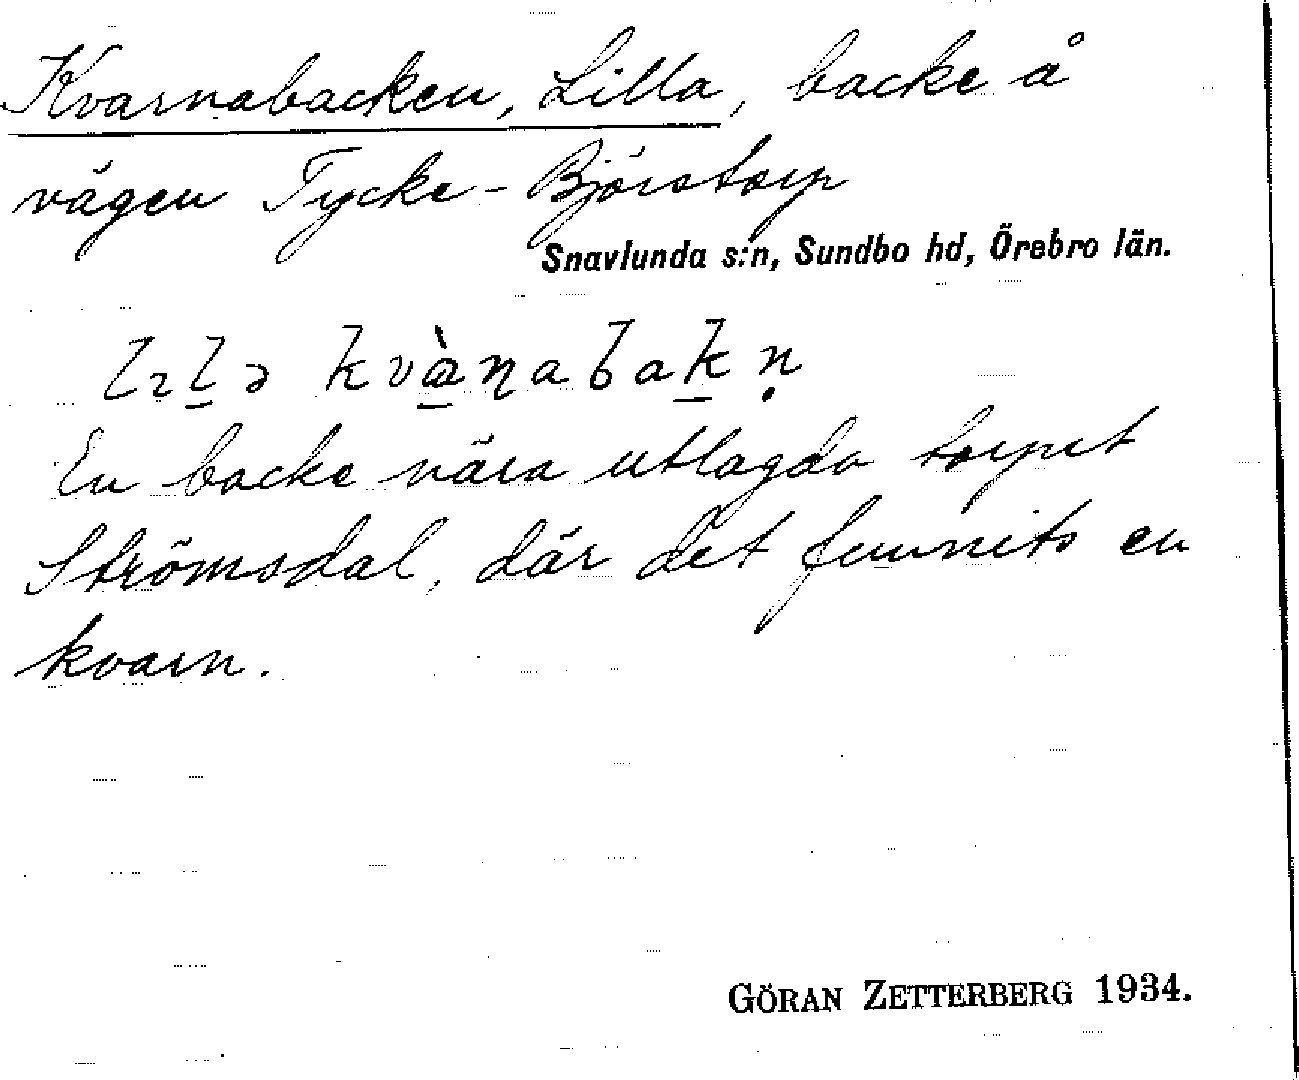 Kvarnabacken, Lilla, backe å
vägen Tycke - Björstorp
Snavlunda s:n, Sundbo hd, Örebro län.
lɪl̲ə kvà̲ɳabak̲ṇ
En backe nära utlagda torpet
Strömsdal, där det funnits en
kvarn.
GÖRAN ZETTERBERG 1934.